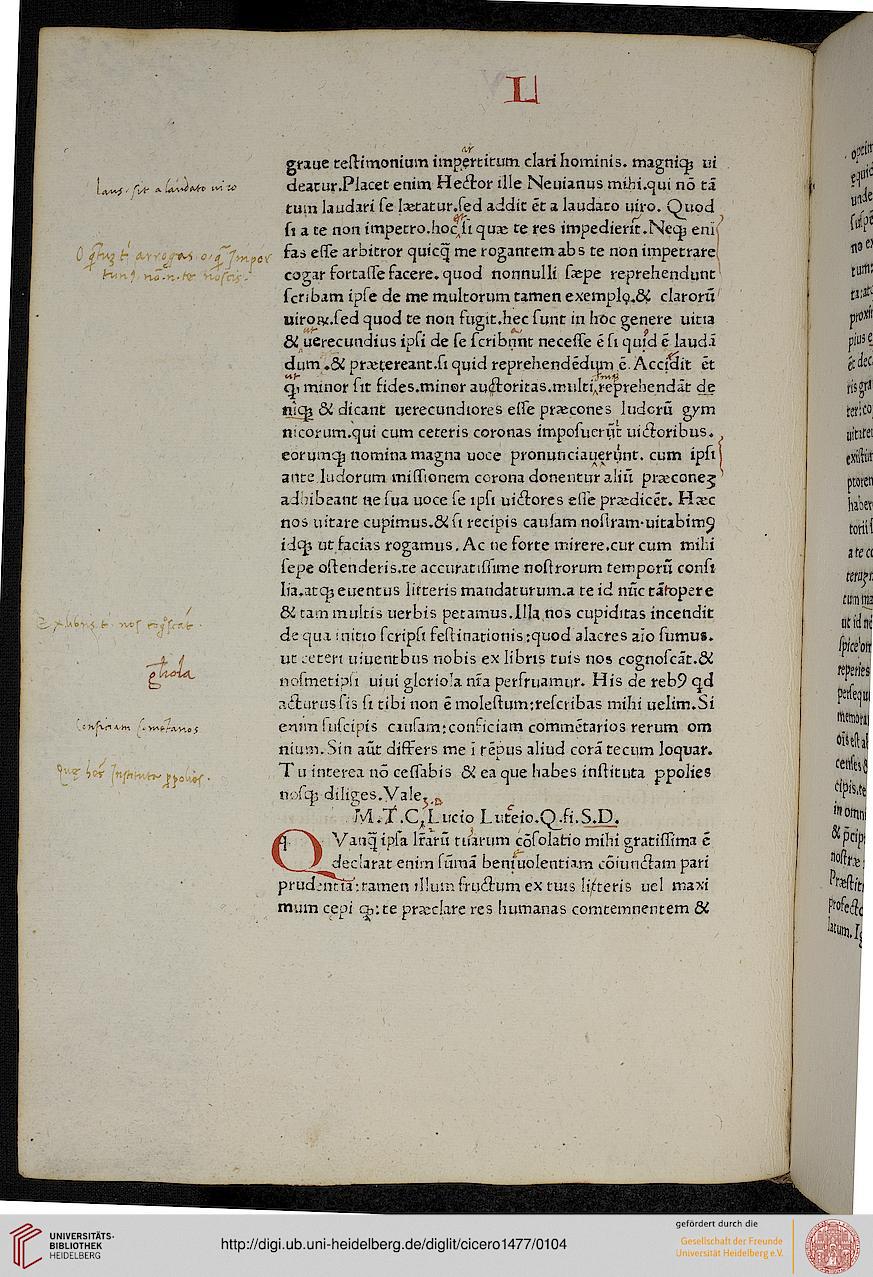 L
graue testimonium impertitum clari hominis. magniqꝫ ui
deatur.Placet enim Hector ille Neuianus mihi.qui nō tā
tum laudari se lætatur.sed addit ēt a laudato uiro. Quod
si a te non impetro.hoc si quæ te res impedierit.Neqꝫ eni
fas esse arbitror quicq̄ me rogantem abs te non impetrare
cogar fortasse facere. quod nonnulli sæpe reprehendunt
scribam ipse de me multorum tamen exemplo.& clarorū
uiroꝝ.sed quod te non fugit.hec sunt in hoc genere uitia
& uerecundius ipsi de se scribunt necesse ē si quid ē laudā
dum .& prætereant.si quid reprehendēdum ē. Accidit ēt
qꝫ minor sit fides.minor auctoritas.multi reprehendāt de
niqꝫ & dicant uerecundiores esse præcones ludorū gym
nicorum.qui cum ceteris coronas imposuerūt uictoribus.
eorumqꝫ nomina magna uoce pronunciauerunt. cum ipsi
ante ludorum missionem corona donentur aliū præconeʒ
adhibeant ne sua uoce se ipsi uictores esse prædicēt. Hæc
nos uitare cupimus.& si recipis causam nostram.uitabimꝯ
idqꝫ ut facias rogamus. Ac ne forte mirere.cur cum mihi
sepe ostenderis.te accuratissime nostrorum temporū consi
lia.atqꝫ euentus litteris mandaturum.a te id nūc tātopere
& tam multis uerbis petamus.Illa nos cupiditas incendit
de qua initio scripsi festinationis:quod alacres aīo sumus.
ut ceteri uiuentbus nobis ex libris tuis nos cognoscāt.&
nosmetipsi uiui gloriola nr̄a perfruamur. His de rebꝯ qd
acturus sis si tibi non ē molestum:rescribas mihi uelim.Si
enim suscipis causam:conficiam commētarios rerum om
nium. Sin aūt differs me ī tēpus aliud corā tecum loquar.
Tu interea nō cessabis & ea que habes instituta ppolies
nosqꝫ diliges.Vale.
M.T.C. Lucio Luteio.Q.fi.S.D.
Q Vanq̄ ipsa lr̄arū tuarum cōsolatio mihi gratissima ē
declarat enim sūmā beniuolentiam cōiunctam pari
prudentia:tamen illum fructum ex tuis litteris uel maxi
mum cepi qꝫ:te præclare res humanas comtemnentem &
laus. sit a laudato uiro
gl̄iola
Conficiam Cōmētarios
Que hēs Instituta ppolies.
UNIVERSITÄTS-
BIBLIOTHEK
HEIDELBERG
http://digi.ub.uni-heidelberg.de/diglit/cicero1477/0104
gefördert durch die
Gesellschaft der Freunde
Universität Heidelberg e.V.